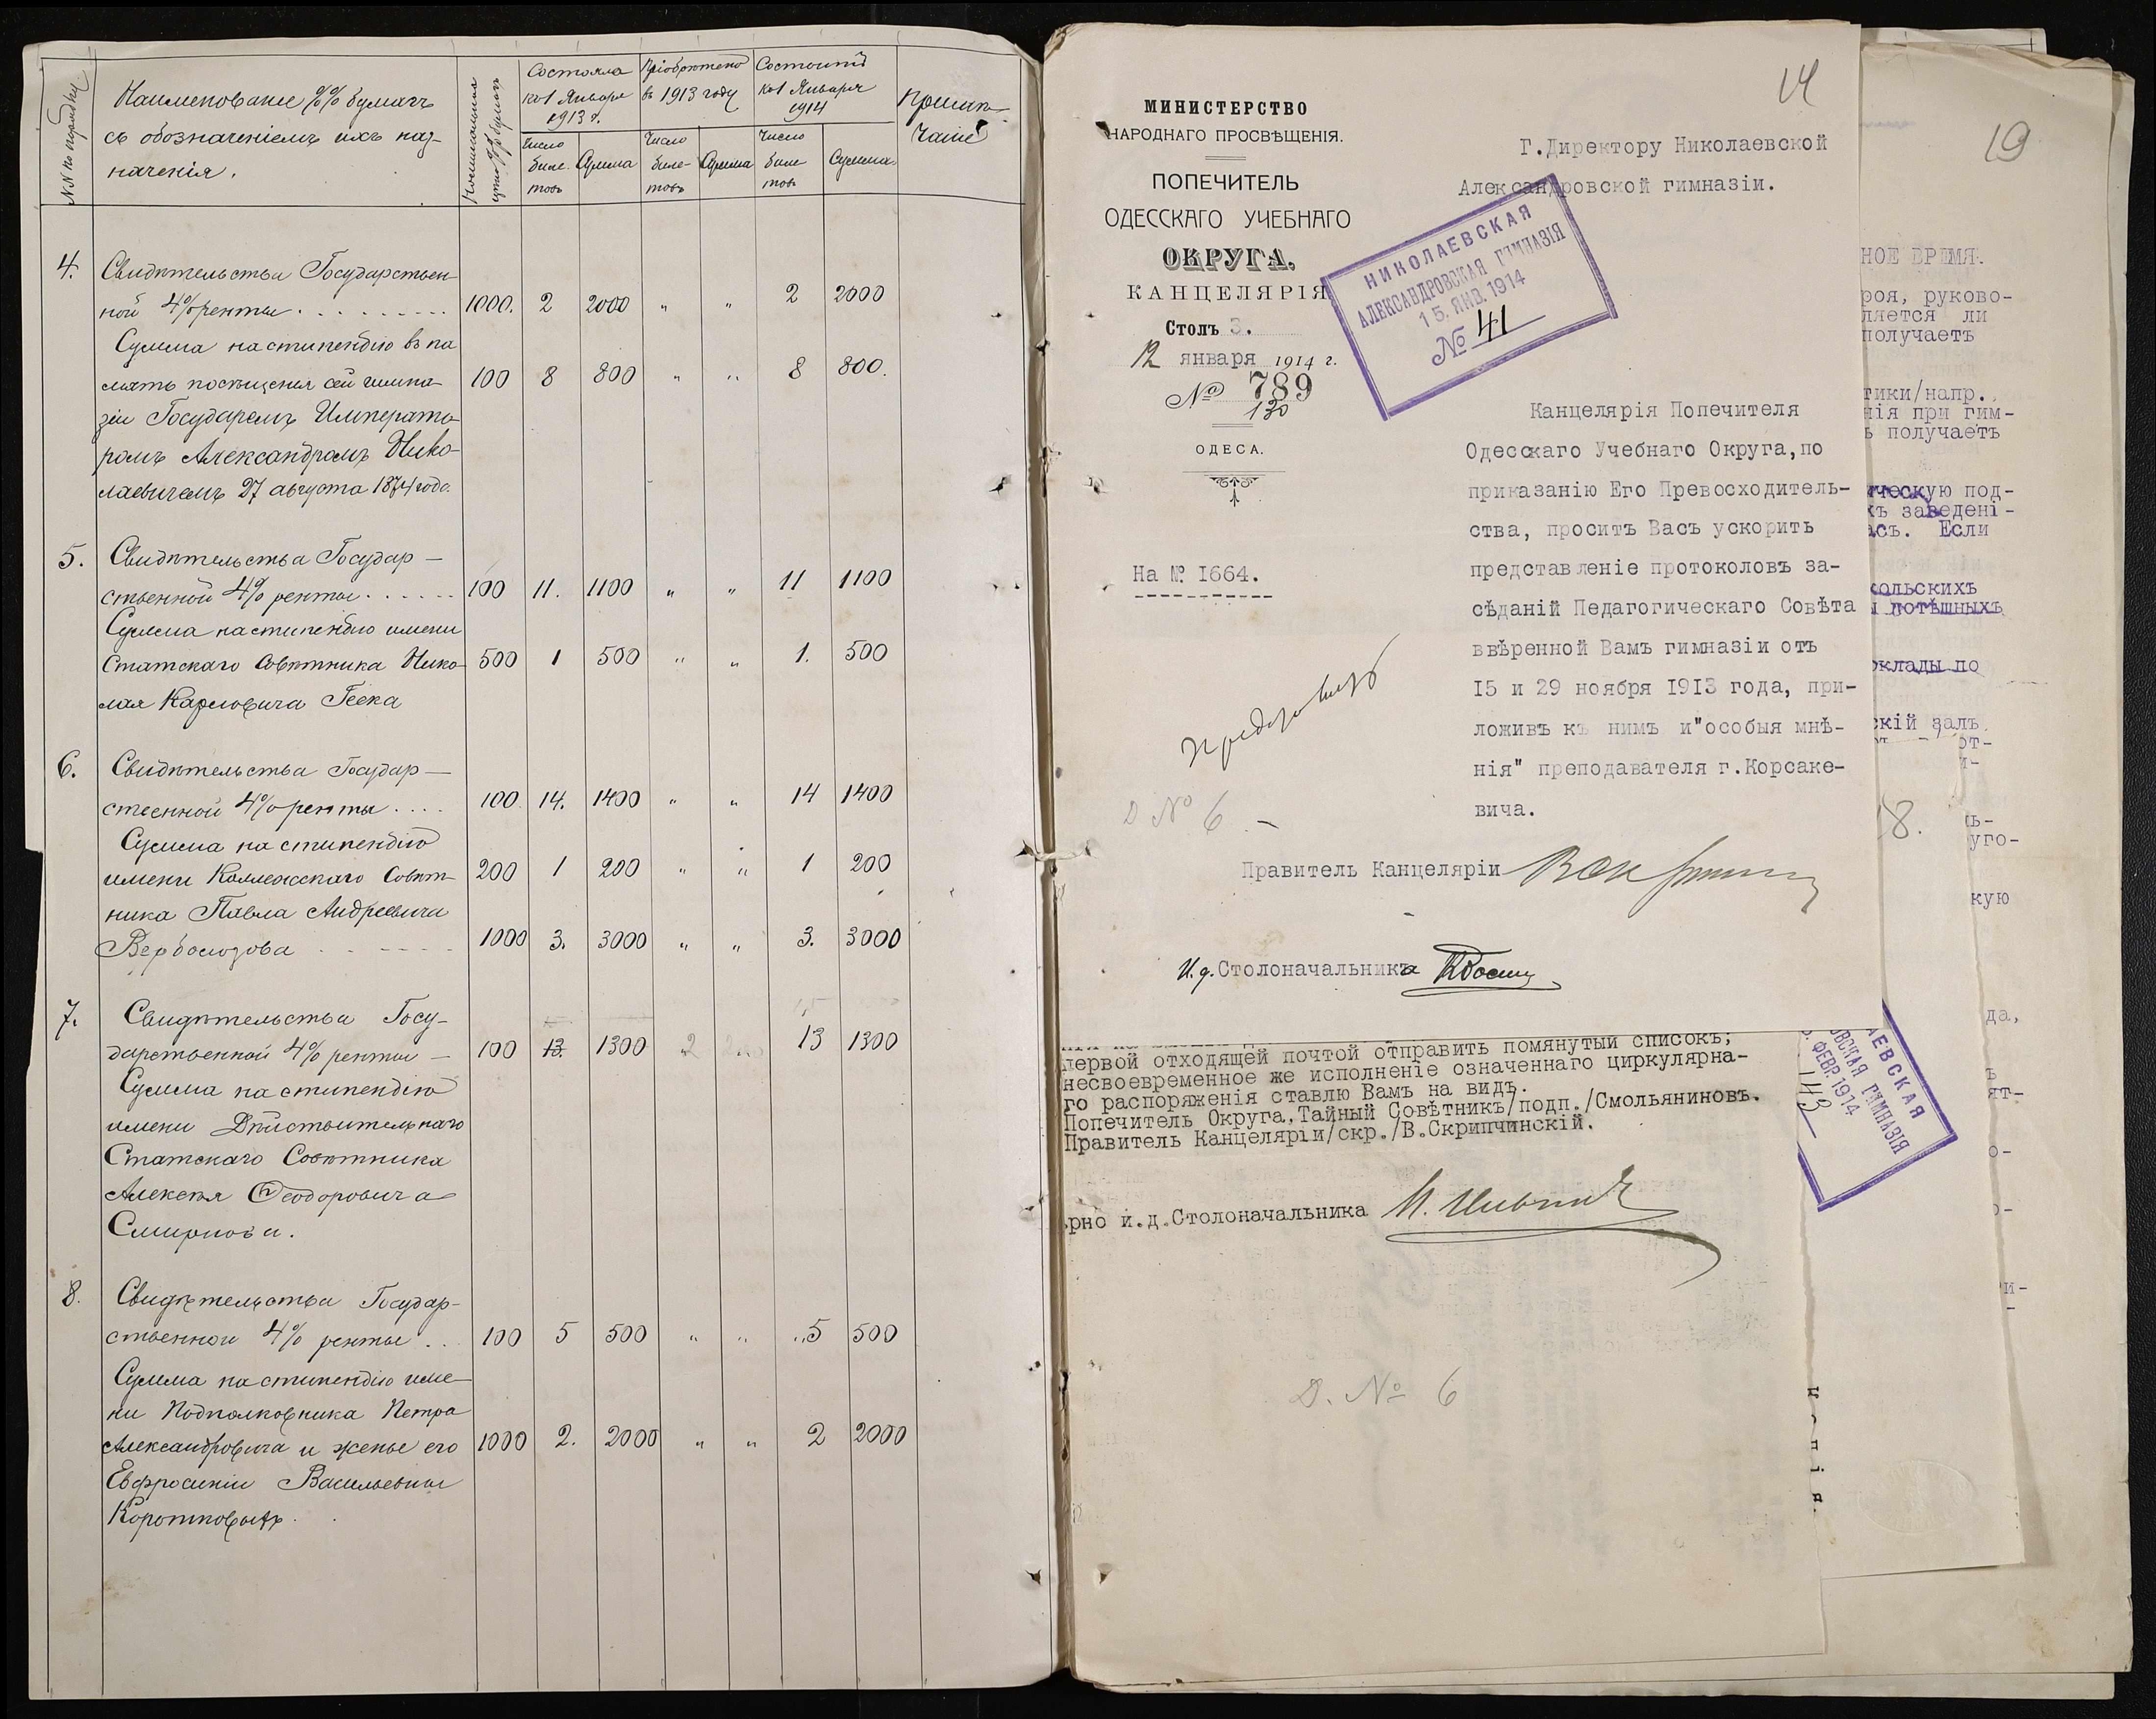 №№ по порядку
Наименованіе %% бумагъ
съ обозначеніемъ ихъ наз-
наченія.
Состояло
къ 1 Января
1913 г.
Пріобрѣтено
въ 1913 году
Состоитъ
къ 1 Января
1914
Примѣ-
чаніе
Число
биле-
товъ
Сумма
Число
биле-
товъ
Сумма
Число
биле
товъ
Сумма
4. Свидѣтельства Государствен-
ной 4% ренты . . . . . . . . . 1000. 2 2000 " " 2 2000
Сумма на стипендію въ па
мять посѣщенія сей гимна- 100 8 800 " " 8 800.
зіи Государемъ Императо-
ромъ Александромъ Нико-
лаевичемъ 27 августа 1874 года.
5. Свидѣтельства Государ —
ственной 4% ренты . . . . . . 100 11. 1100 " " 11 1100
Сумма на стипендію имени
Статскаго Совѣтника Нико- 500 1 500 " " 1. 500
лая Карловича Геека
6. Свидѣтельства Государ —
ственной 4% ренты . . . . 100 14. 1400 " " 14 1400
Сумма на стипендію
имени Коллежскаго Совѣт- 200 1 200 " " 1 200
ника Павла Андреевича
1000 3. 3000 " " 3. 3000
7. Свидѣтельства Госу-
дарственной 4% ренты — 100 13. 1300 2 " 13 1300
Сумма на стипендію
имени Дѣйствительнаго
Статскаго Совѣтника
Алексѣя Ѳеодоровича
Смирнова.
8. Свидѣтельства Государ-
ственной 4% ренты . . 100 5 500 " " 5 500
Сумма на стипендію име-
ни Подполковника Петра
Александровича и женѣ его 1000 2. 2000 " " 2 2000
Евфросиніи Васильевны
Коротковыхъ.
14
МИНИСТЕРСТВО
НАРОДНАГО ПРОСВѢЩЕНІЯ.
ПОПЕЧИТЕЛЬ
ОДЕССКАГО УЧЕБНАГО
ОКРУГА,
КАНЦЕЛЯРІЯ
Столъ 3.
12 января 1914 г.
№ 789
130
ОДЕСА.
На № 1664.
Г.Директору Николаевской
Александровской гимназіи.
НИКОЛАЕВСКАЯ
АЛЕКСАНДРОВСКАЯ ГИМНАЗІЯ
15. ЯНВ. 1914
№ 41
Канцелярія Попечителя
Одесскаго Учебнаго Округа,по
приказанію Его Превосходитель-
ства, проситъ Васъ ускорить
представленіе протоколовъ за-
сѣданій Педагогическаго Совѣта
ввѣренной Вамъ гимназіи отъ
15 и 29 ноября 1913 года, при-
ложивъ къ нимъ и"особыя мнѣ-
нія" преподавателя г.Корсаке-
вича.
Д № 6 –
Правитель Канцеляріи
И.д.Столоначальника
первой отходящей почтой отправить помянутый списокъ;
несвоевременное же исполненіе означеннаго циркулярна-
го распоряженія ставлю Вамъ на видъ.
Попечитель Округа,Тайный Совѣтникъ/подп./Смольяниновъ.
Правитель Канцеляріи/скр./В.Скрипчинскій.
рно и.д.Столоначальника
Д. № 6
АЕВСКАЯ
ОВСКАЯ ГИМНАЗІЯ
ФЕВР. 1914
143
Копія.
19
НОЕ ВРЕМЯ.
роя, руково-
ляется ли
получаетъ
тики/напр.
нія при гим-
ь получаетъ
ическую под-
хъ заведені-
ась. Если
кольскихъ
ы потѣшныхъ
оклады по
скій залъ
от-
и-
8.
ь-
уго-
кую
да,
ъ
ят-
о-
о-
и-